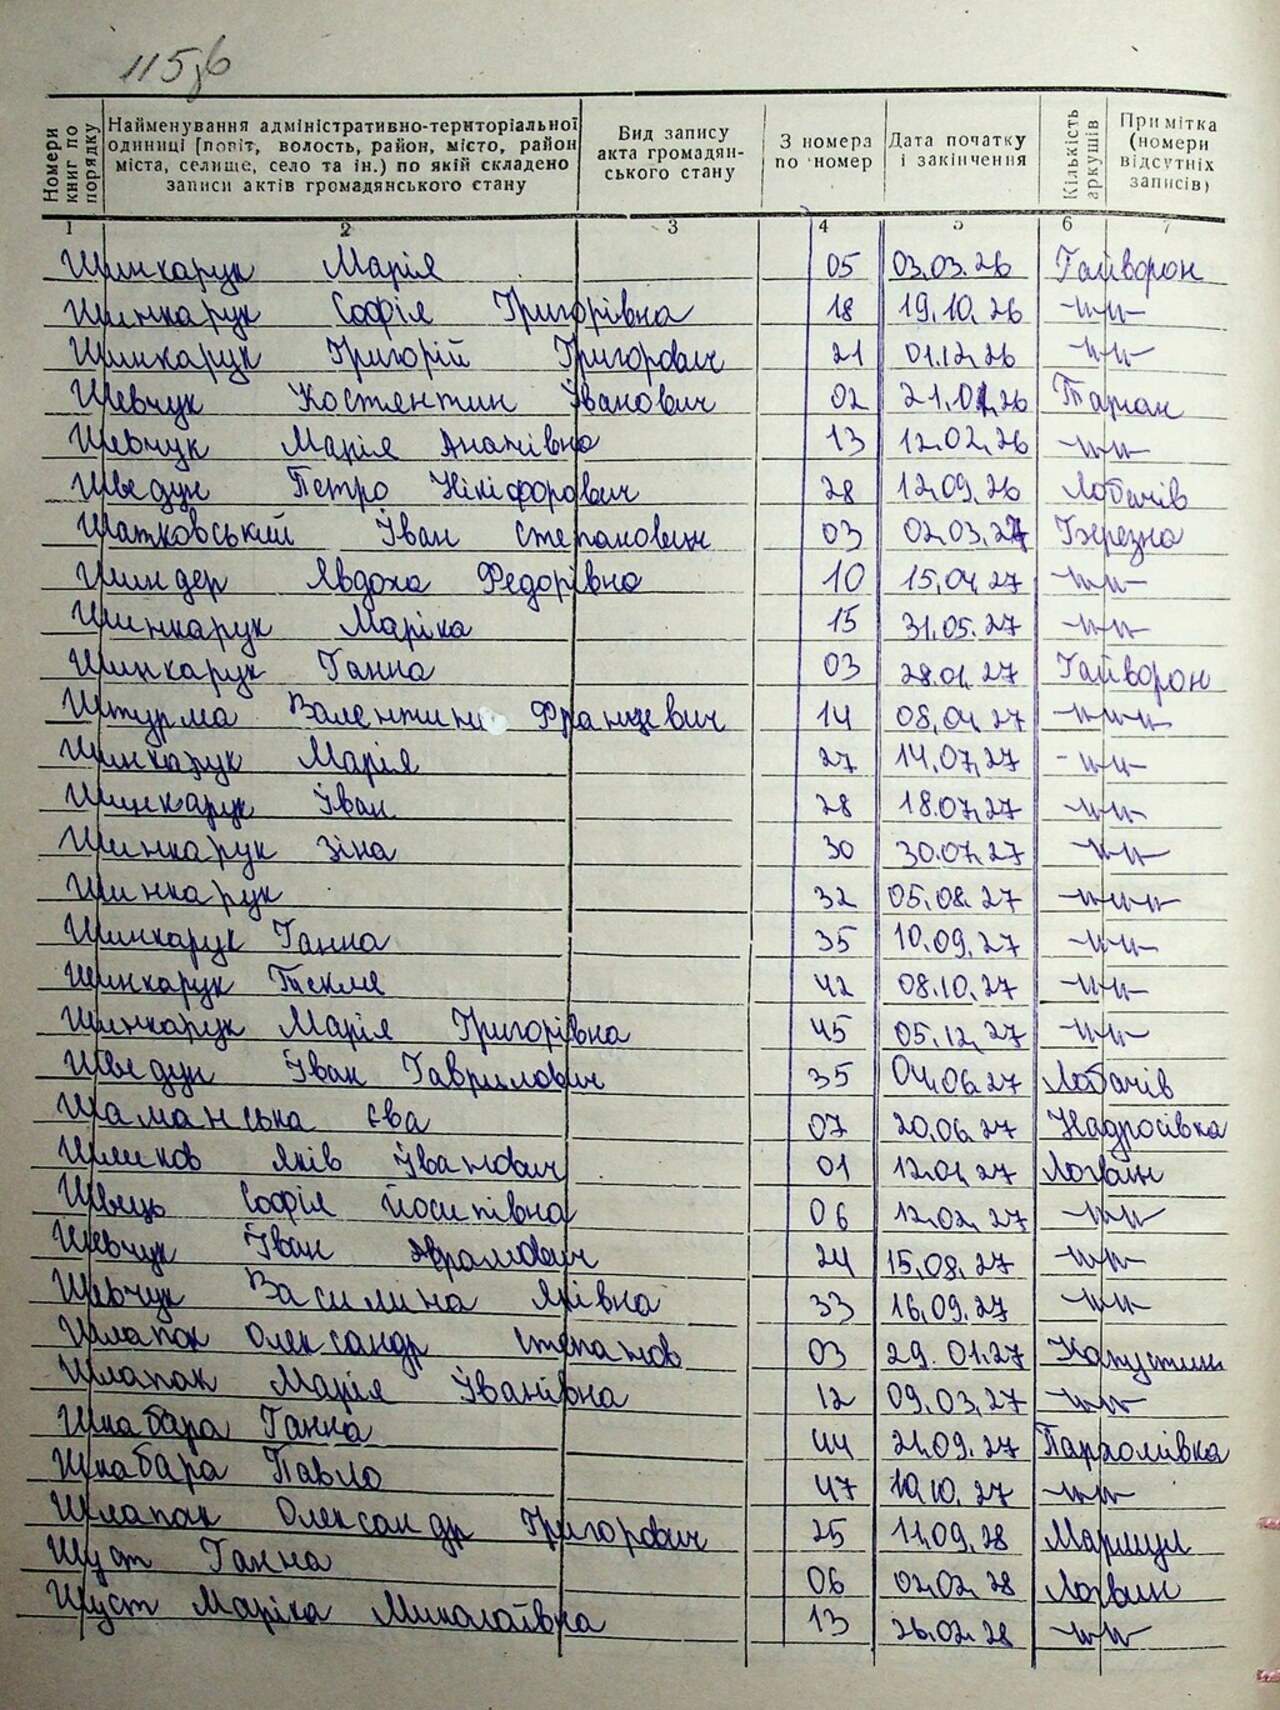 115зв
Номери книг по порядку
Найменування адміністративно-територіальної
одиниці (повіт, волость, район, місто, район
міста, селище, село та ін.) по якій складено
записи актів громадянського стану
Вид запису
акта громадян-
ського стану
З номера
по номер
Дата початку
і закінчення
Кількість аркушів
Примітка
(номери
відсутніх
записів)
1 2 3 4 5 6 7
Шинкарук Марія 05 03.03.26 Гайворон
Шинкарук Софія Григорівна 18 19.10.26 -〃-
Шинкарук Григорій Григорович 21 01.12.26 -〃-
Шевчук Костянтин Іванович 02 21.01.26 Тарган
Шевчук Марія Ананівна 13 12.02.26 -〃-
Шведун Петро Нікіфорович 28 12.09.26 Лобачів
Шатковський Іван Степанович 03 02.03.27 Березна
Шиндер Явдоха Федорівна 10 15.04.27 -〃-
Шинкарук Маріка 15 31.05.27 -〃-
Шинкарук Ганна 03 28.01.27 Гайворон
Штурма Валентин Францевич 14 08.04.27 -〃-
Шинкарук Марія 27 14.07.27 -〃-
Шинкарук Іван 28 18.07.27 -〃-
Шинкарук Зіна 30 30.07.27 -〃-
Шинкарук 32 05.08.27 -〃-
Шинкарук Ганна 35 10.09.27 -〃-
Шинкарук Текля 42 08.10.27 -〃-
Шинкарук Марія Григорівна 45 05.12.27 -〃-
Шведун Іван Гаврилович 35 04.06.27 Лобачів
Шаманська Єва 07 20.06.27 Надросівка
Шликов Яків Іванович 01 12.01.27 Логвин
Швець Софія Йосипівна 06 12.02.27 -〃-
Шевчук Іван Аврамович 24 15.08.27 -〃-
Шевчук Василина Яківна 33 16.09.27 -〃-
Шлапак Олександр Степанов 03 29.01.27 Капустин
Шлапак Марія Іванівна 12 09.03.27 -〃-
Шкабара Ганна 44 21.09.27 Пархомівка
Шкабара Павло 47 10.10.27 -〃-
Шлапак Олександр Григорович 25 11.09.28 Марищи
Шуст Ганна 06 02.02.28 Логвин
Шуст Маріка Миколаївна 13 26.02.28 -〃-